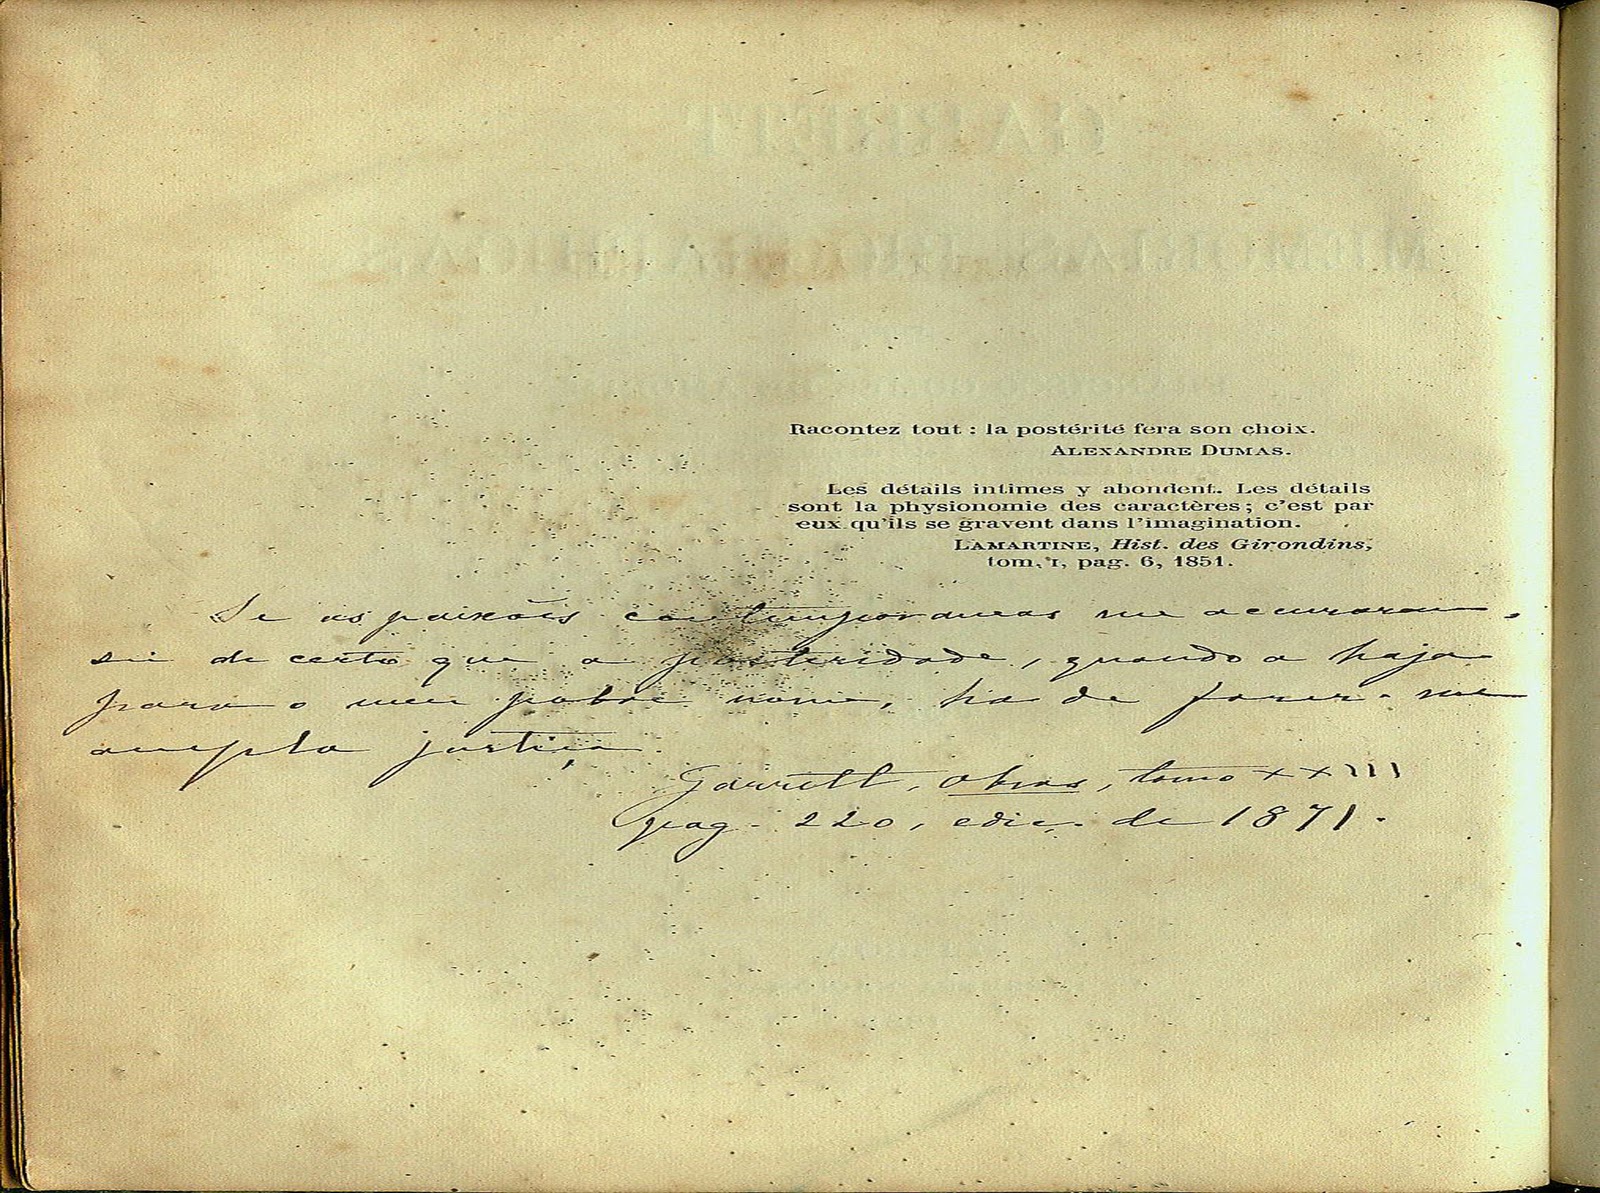 Racontez tout : la postérité fera son choix.
ALEXANDRE DUMAS.
Les détails intimes y abondent. Les détails
sont la physionomie des caractères ; c'est par
eux qu'ils se gravent dans l'imagination.
LAMARTINE, Hist. des Girondins,
tom. I, pag. 6, 1851.
Se as paixões contemporaneas me accusaram,
sei de certo que a posteridade, quando a haja
para o meu pobre nome, ha de fazer-me
ampla justiça.
Garrett, Obras, tomo XXIII
pag. 220, ediç. de 1871.